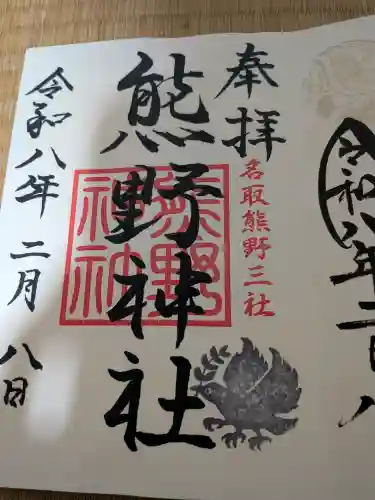 奉拝
名取熊野三社
熊野神社
熊野
神社
令和八年 二月 八日
令和八年二月八